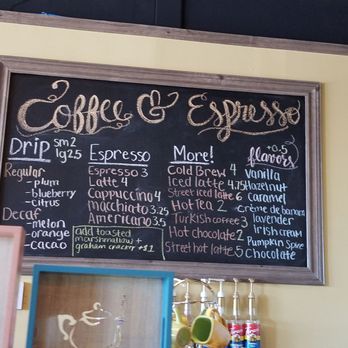 Coffee & Espresso
Drip sm 2
lg 2.5
Regular
- plum
- blueberry
- citrus
Decaf
- melon
- orange
- cacao
Espresso
Espresso 3
Latte 4
Cappuccino 4
macchiato 3.25
Americano 3.5
add toasted
marshmallow +
graham cracker +$1
More!
Cold Brew 4
Iced latte 4.75
Street iced latte 6
Hot Tea 2
Turkish coffee 3
Hot chocolate 2
Street hot latte 5
+0.5
flavors
Vanilla
Hazelnut
Caramel
crème de banana
lavender
Irish cream
Pumpkin Spice
Chocolate